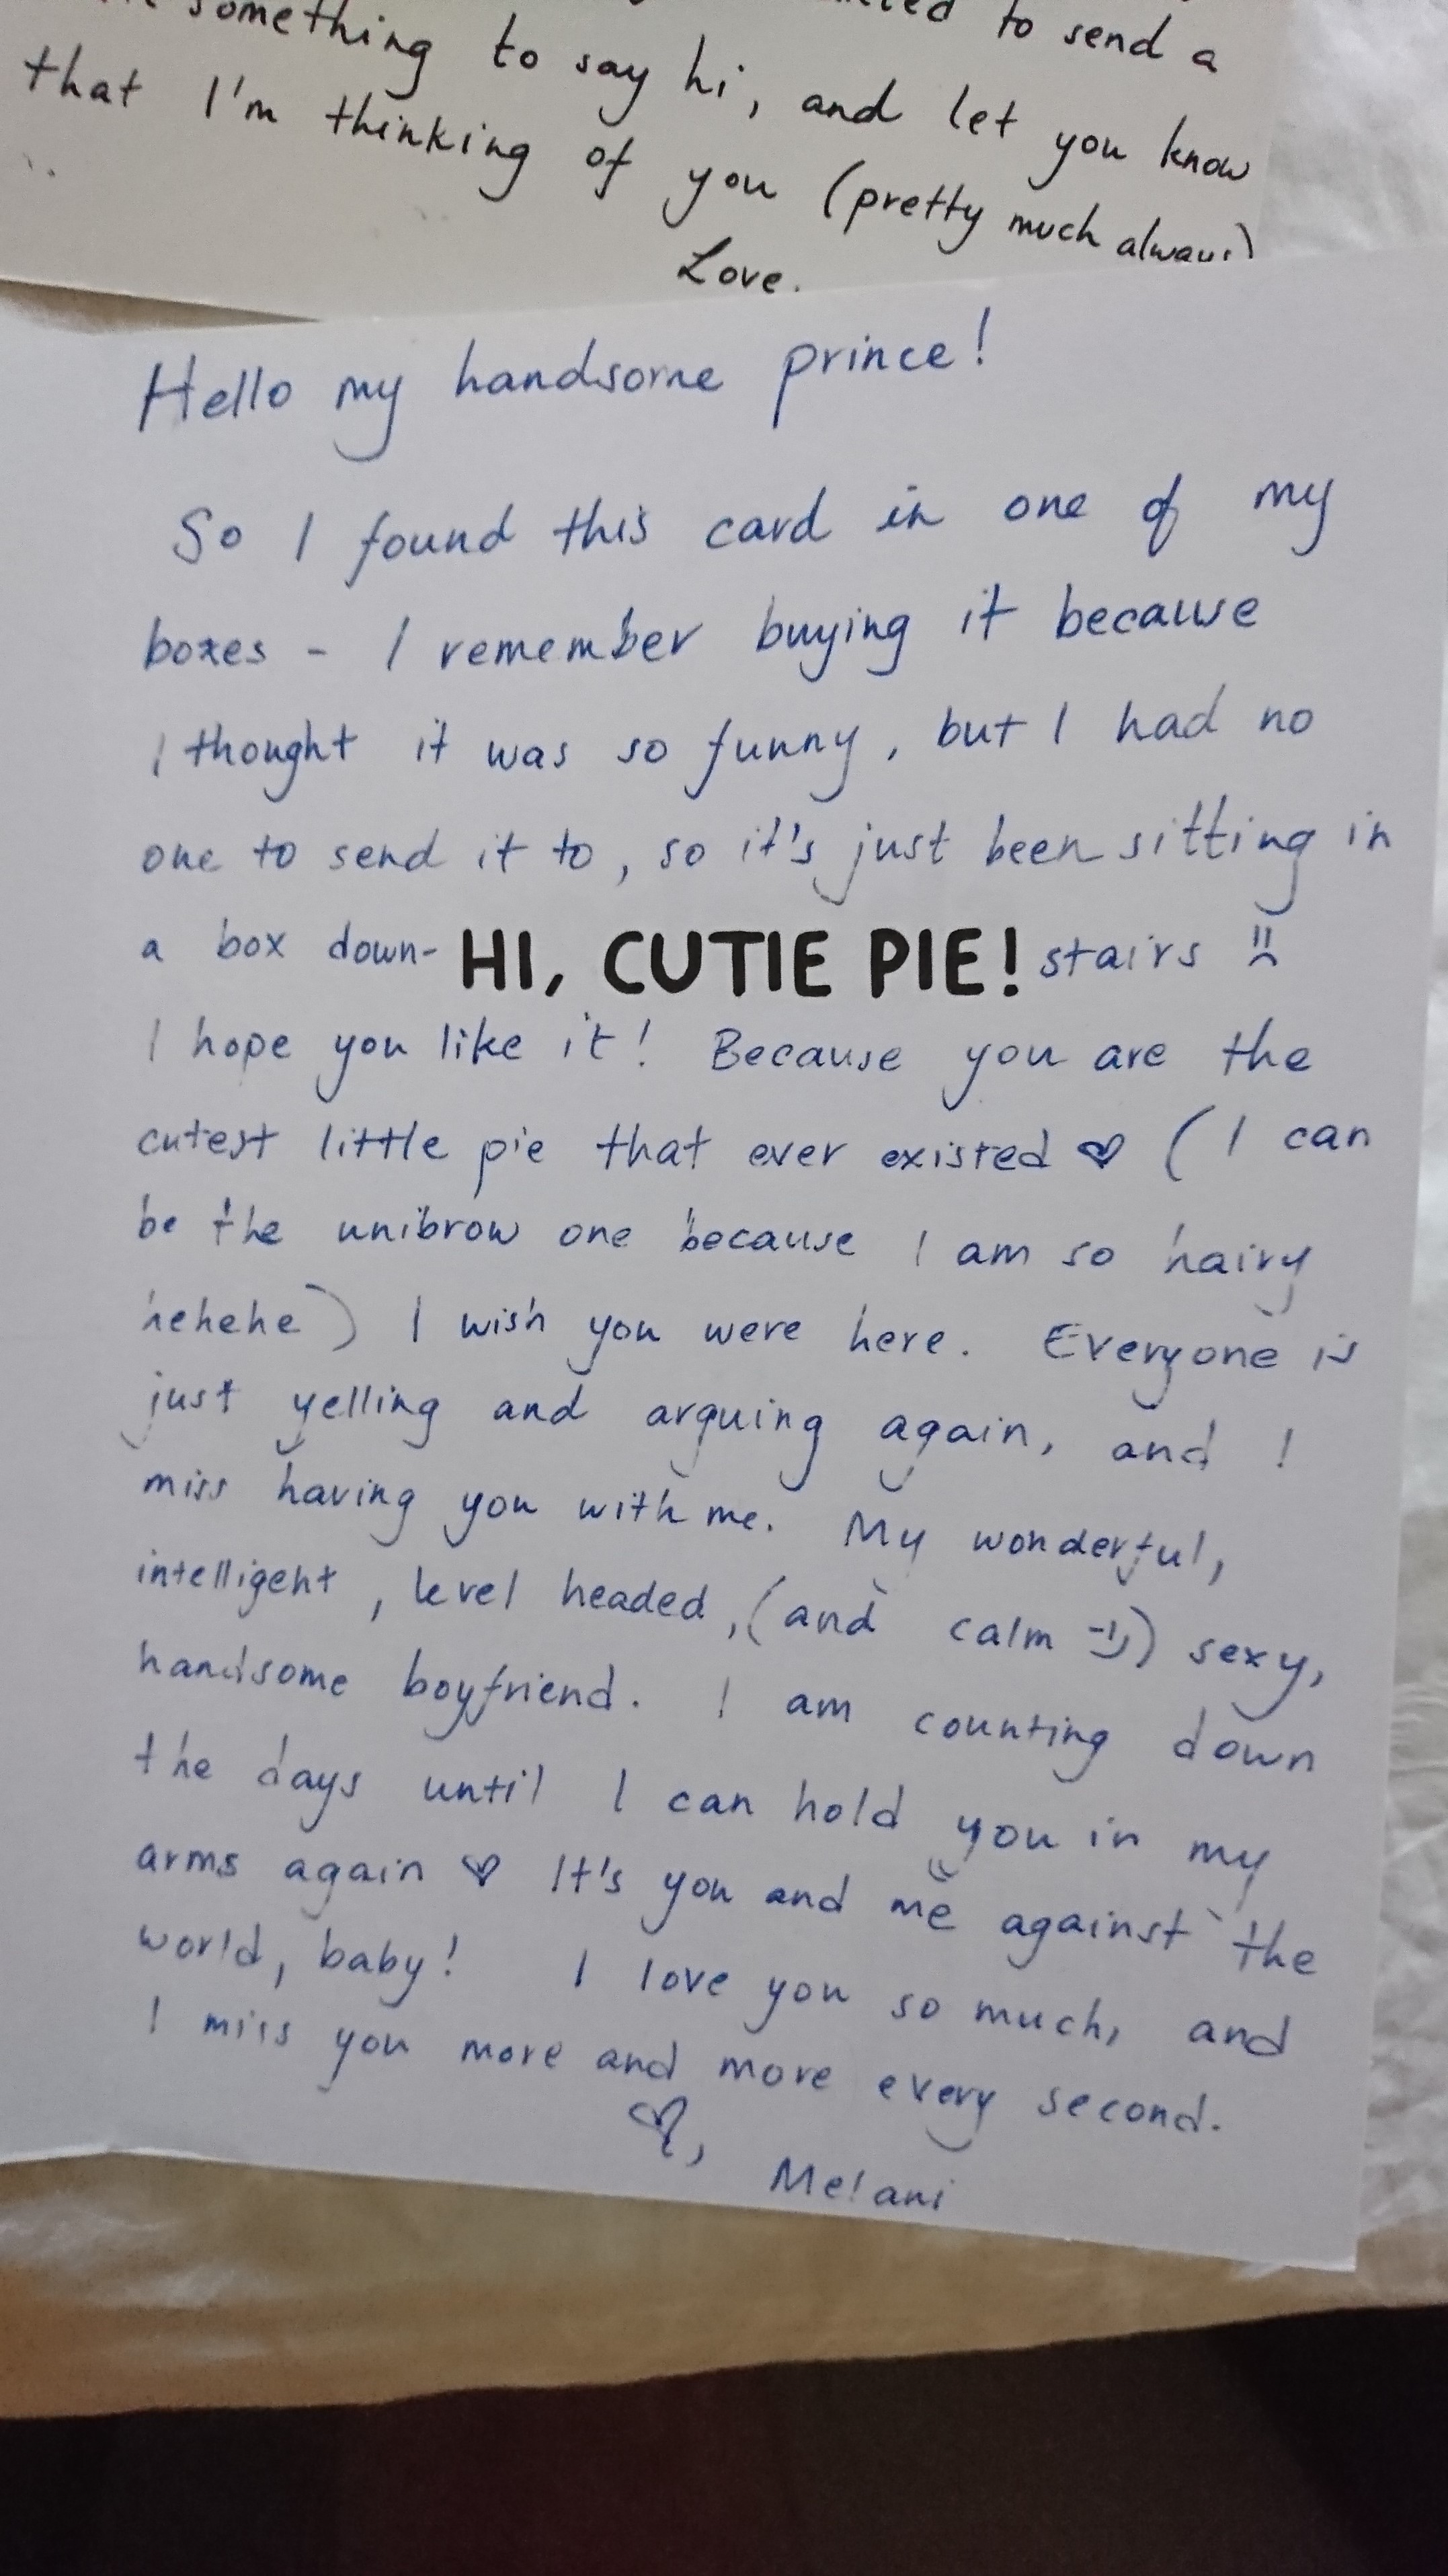 something to say hi, and let you know
to send a
that I'm thinking of you (pretty much always)
Love.
Hello my handsome prince!
So I found this card in one of my
boxes - I remember buying it because
I thought it was so funny, but I had no
one to send it to, so it's just been sitting in
a box down- HI, CUTIE PIE! stairs :(
I hope you like it! Because you are the
cutest little pie that ever existed ♡ (I can
be the unibrow one because I am so hairy
hehehe) I wish you were here. Everyone is
just yelling and arguing again, and I
miss having you with me. My wonderful,
intelligent, level headed, (and calm =)) sexy,
handsome boyfriend. I am counting down
the days until I can hold you in my
arms again ♡ It's you and me against the
world, baby! I love you so much, and
I miss you more and more every second.
♡, Melani